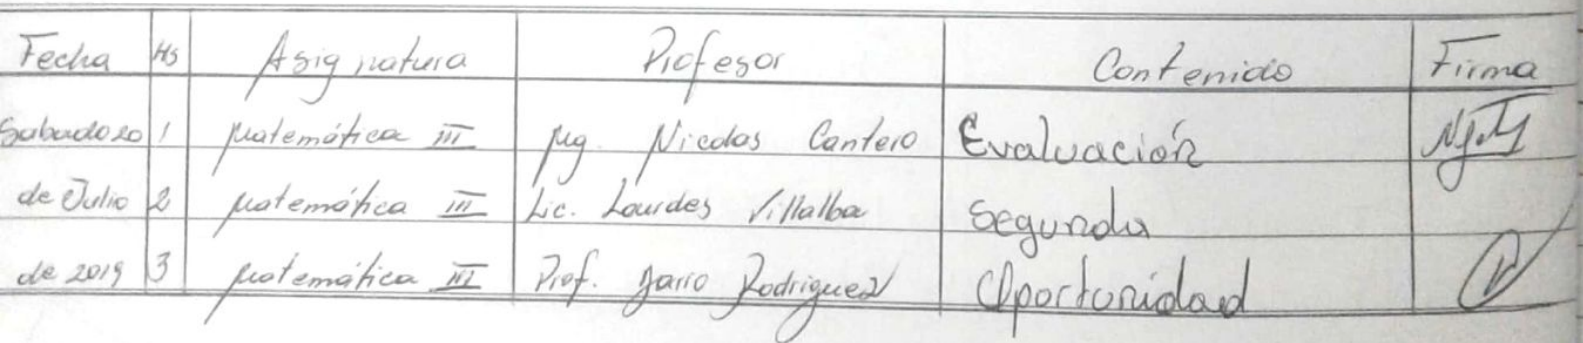 Fecha Hs Asignatura Profesor Contenido Firma
Sabado 20 1 Matemática III Mg. Nicolas Cantero Evaluación
de Julio 2 Matemática III Lic. Lourdes Villalba Segunda
de 2019 3 Matemática III Prof. Dario Rodriguez Oportunidad